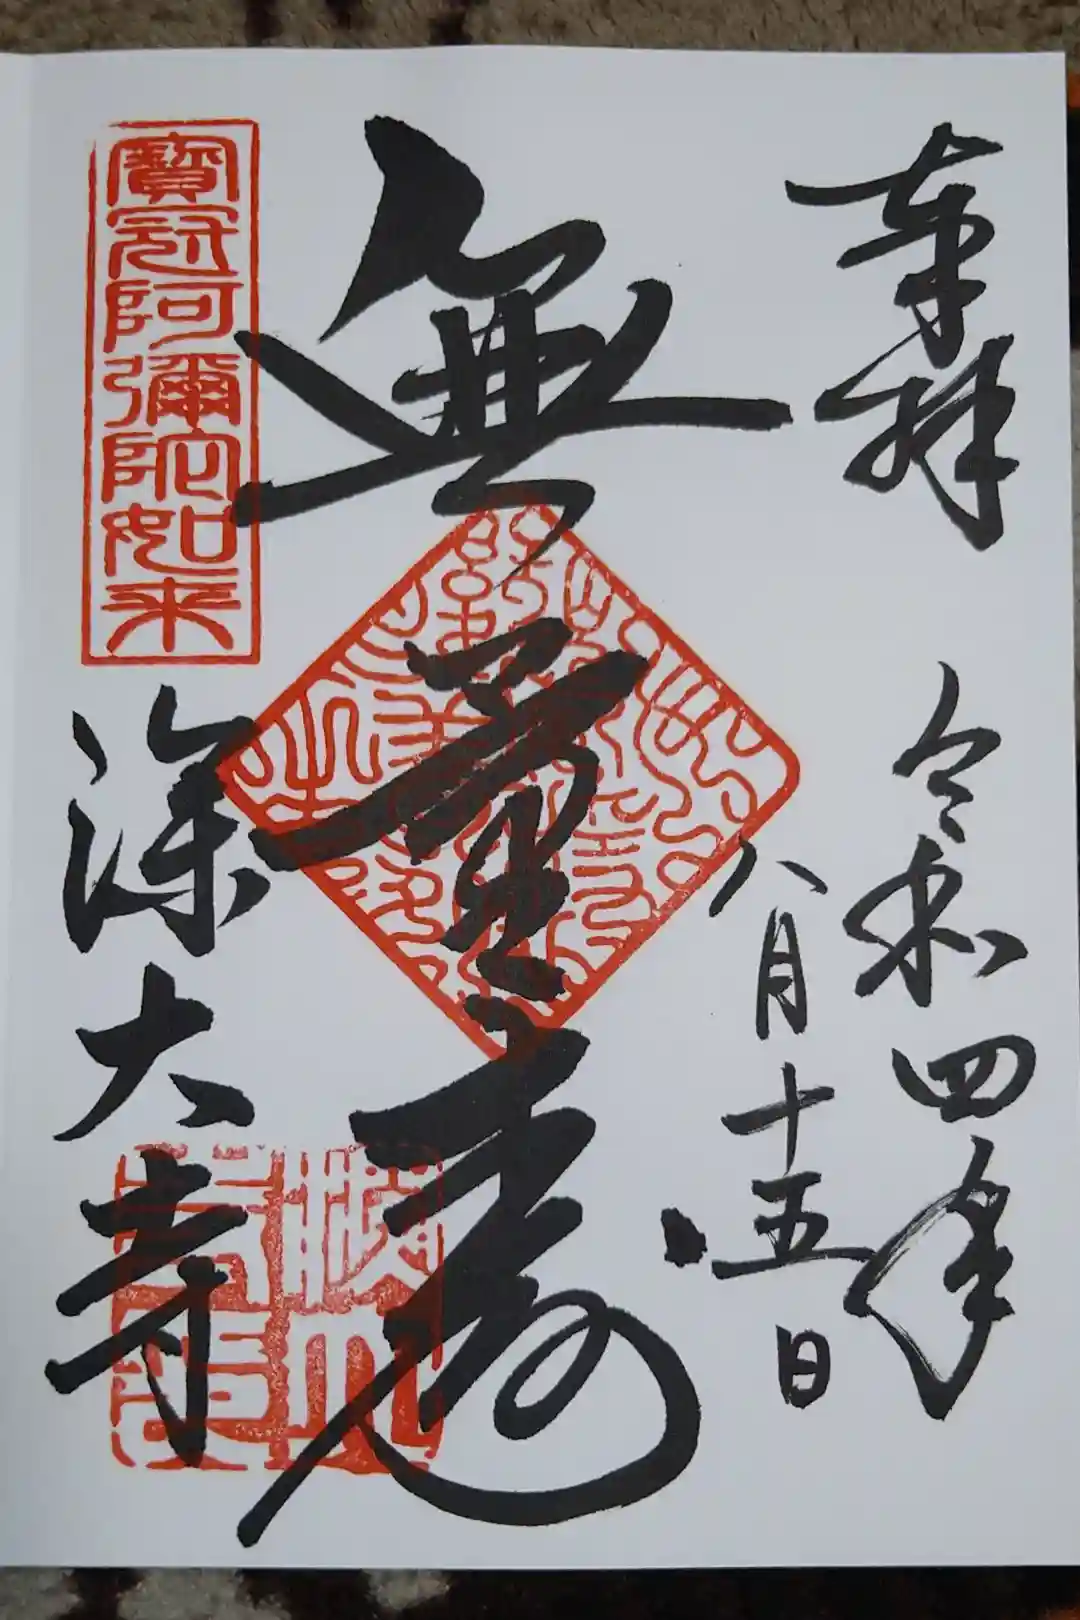 奉拝
令和四年
八月十五日
無量寿
寶冠阿彌陀如来
深大寺